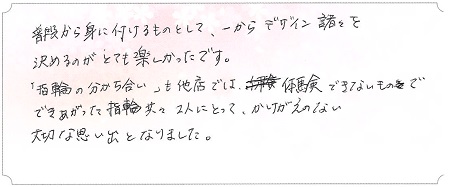 普段から身に付けるものとして、一からデザイン諸々を
決めるのがとても楽しかったです。
「指輪の分かち合い」も他店では、体験できないもので
できあがった指輪共々2人にとって、かけがえのない
大切な思い出となりました。